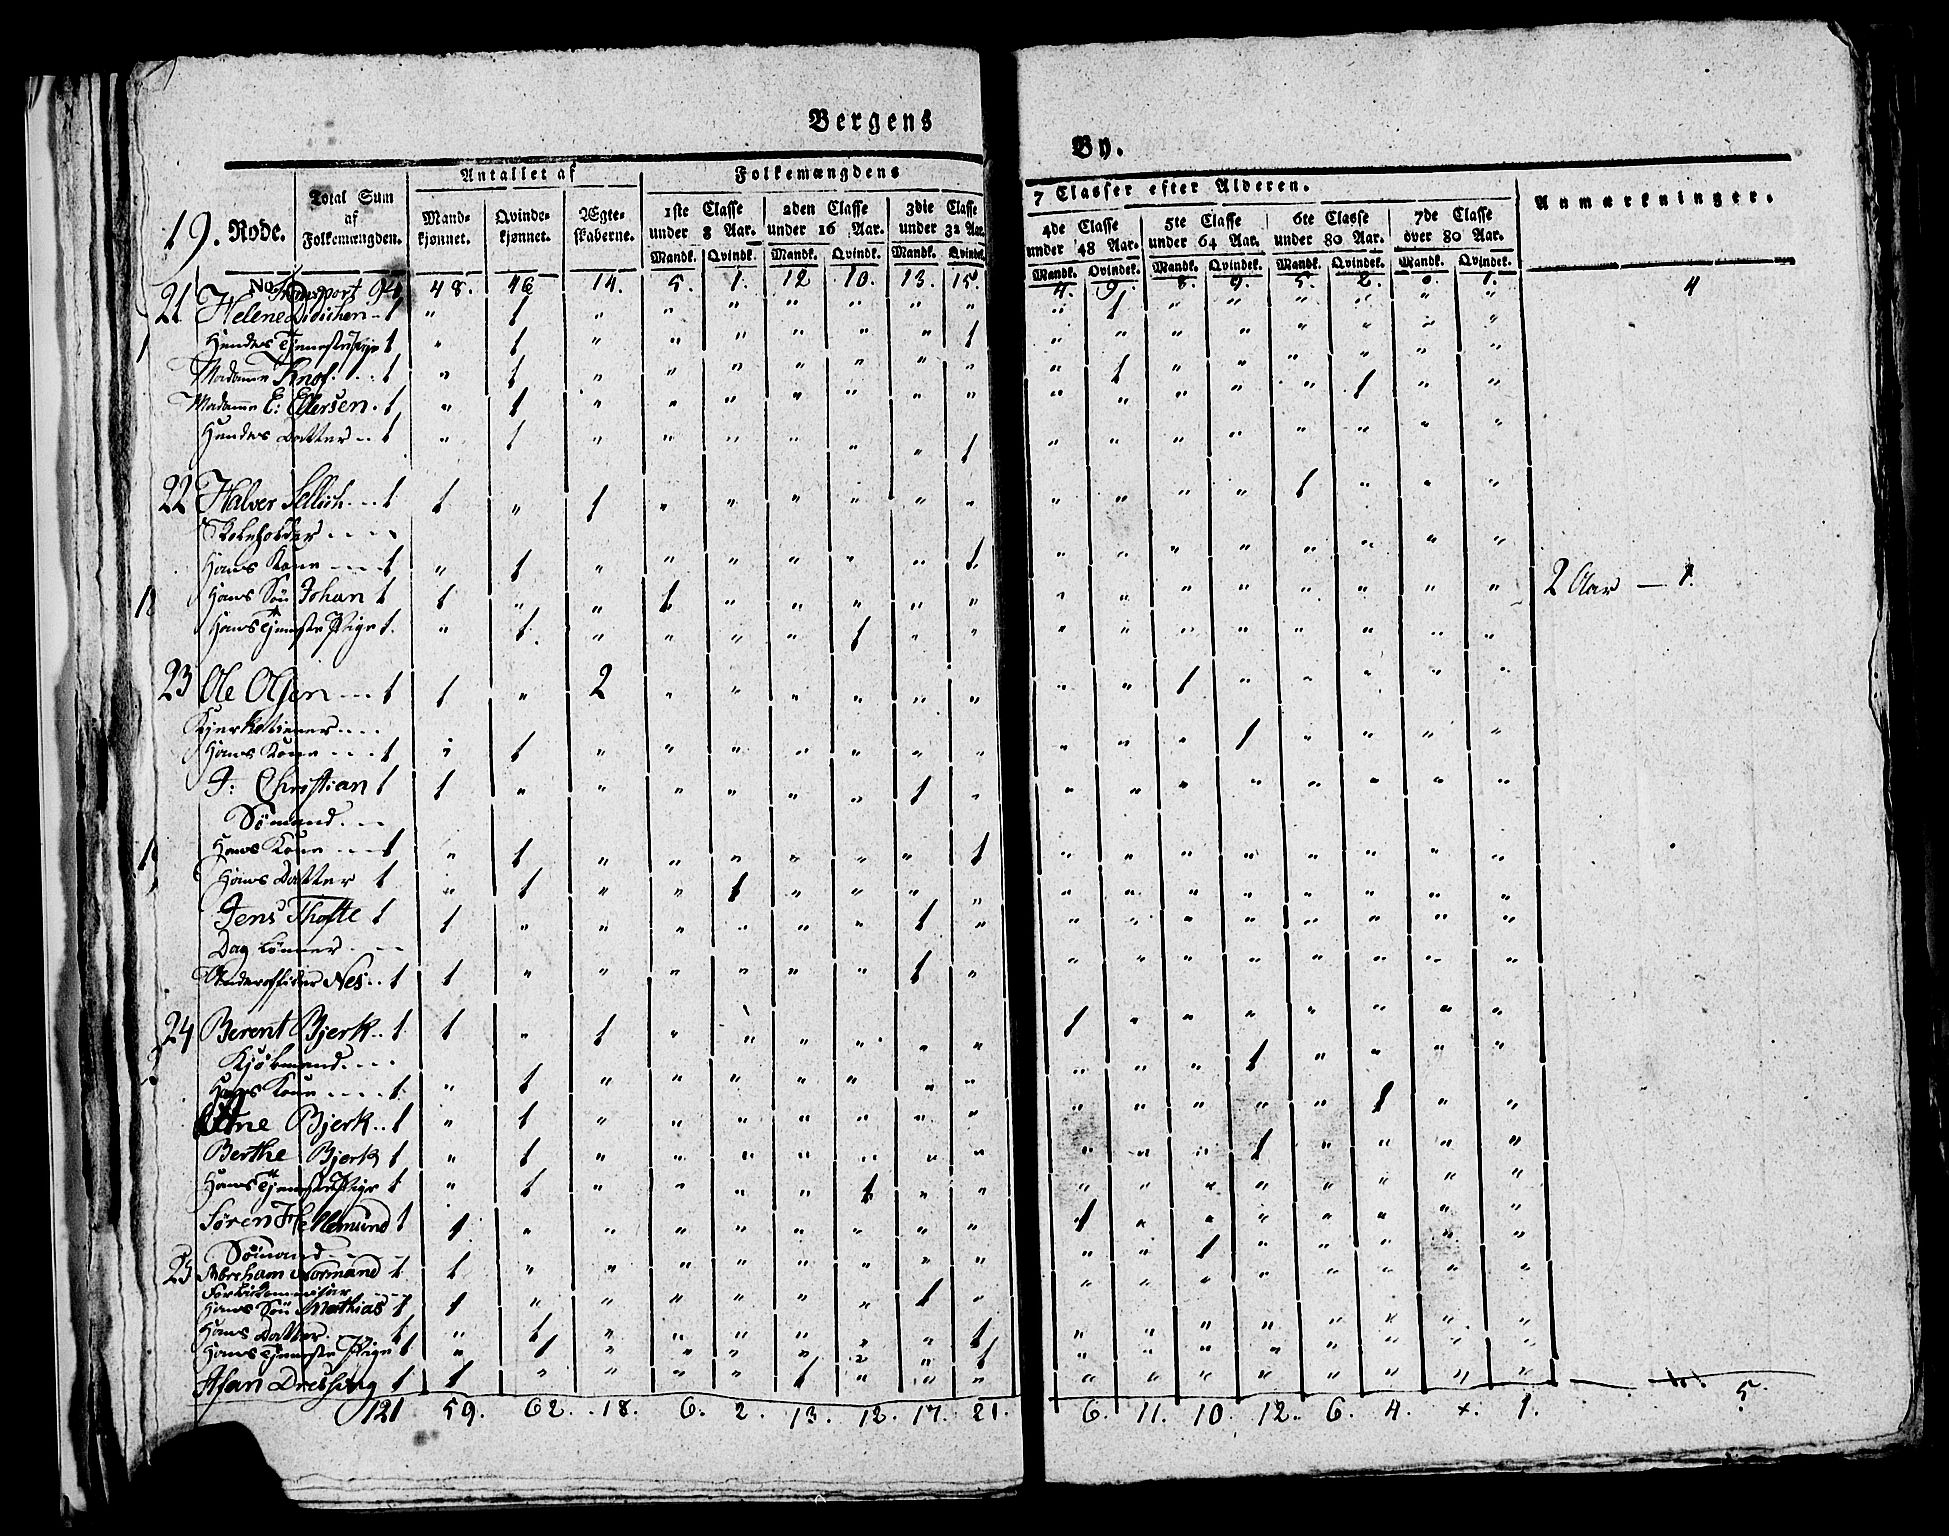 Bergens
By.
19. Rode.
Total Sum af Folkemængden.
Antallet af
Mandkjønnet. Qvindekjønnet. Ægteskaberne.
Folkemængdens
7 Classer efter Alderen.
1ste Classe under 8 Aar. 2den Classe under 16 Aar. 3die Classe under 32 Aar.
4de Classe under 48 Aar. 5te Classe under 64 Aar. 6te Classe under 80 Aar. 7de Classe over 80 Aar.
Mandk. Qvindk. Mandk. Qvindk. Mandk. Qvindek. Mandk. Qvindek. Mandk. Qvindek. Mandk. Qvindek. Mandk. Qvindek.
Anmærkninger.
No. Transport 94 48. 46 14. 5. 1. 12 10. 13. 15. 4. 9. 8. 9. 5. 2. " 1. 4
21 Helene Didichen 1 " 1 " " " " " " " " 1 " " " " " "
Hendes Tjenestepige 1 " 1 " " " " " " 1 " " " " " " " "
Madamme Knof 1 " 1 " " " " " " " " 1 " " " " " "
Madamme E: Ellersen 1 " 1 " " " " " " " " " " " " 1 " "
Hendes Datter 1 " 1 " " " " " " 1 " " " " " " " "
22 Halver Sellich 1 1 " 1 " " " " " " " " " " 1 " " "
Hans Kone 1 " 1 " " " " " " 1 " " " " " " " "
Hans Søn Johan 1 1 " " 1 " " " " " " " " " " " " " 2 Aar — 1.
Hans Tjeneste Pige 1. " 1. " " " " 1 " " " " " " " " " "
23 Ole Olsen 1 1 " 2 " " " " " " " " 1 " " " " "
Kjerketiener
Hans Kone 1 " 1 " " " " " " " " " " 1 " " " "
J: Christian 1 1 " " " " " " 1 " " " " " " " " "
Sømand
Hans Kone 1 " 1 " " " " " " 1 " " " " " " " "
Hans Datter 1 " 1 " " 1 " " " " " " " " " " " "
Jens Thofte 1 1 " " " " " " 1 " " " " " " " " "
Dag Lønner
Underofficier Nes 1 1 " " " " " " 1 " " " " " " " " "
24 Berent Bjerk 1 1 " 1 " " " " " " 1 " " " " " " "
Kjøbmand
Hans Kone 1 " 1 " " " " " " " " " " 1 " " " "
Bjerk 1 " 1 " " " " " " " " " " " " 1 " "
Berthe Bjerk 1 " 1 " " " " " " " " " " 1 " " " "
Hans Tjeneste Pige 1 " 1 " " " " 1 " " " " " " " " " "
Søren Hellemund 1 1 " " " " " " " " 1 " " " " " " "
Sømand
25 Abraham Normand 1 1 " " " " " " " " " " 1 " " " " "
Hans Søn Mathias 1 1 " " " " " " 1 " " " " " " " " "
Hans Datter 1 " 1 " " " " " " 1 " " " " " " " "
Hans Tjeneste Pige 1 " 1 " " " " " " 1 " " " " " " " "
Dressing 1 1 " " " " 1 " " " " " " " " " " "
121 59. 62. 18. 6. 2. 13. 12. 17. 21. 6. 11. 10 12. 6. 4. x. 1. 5.